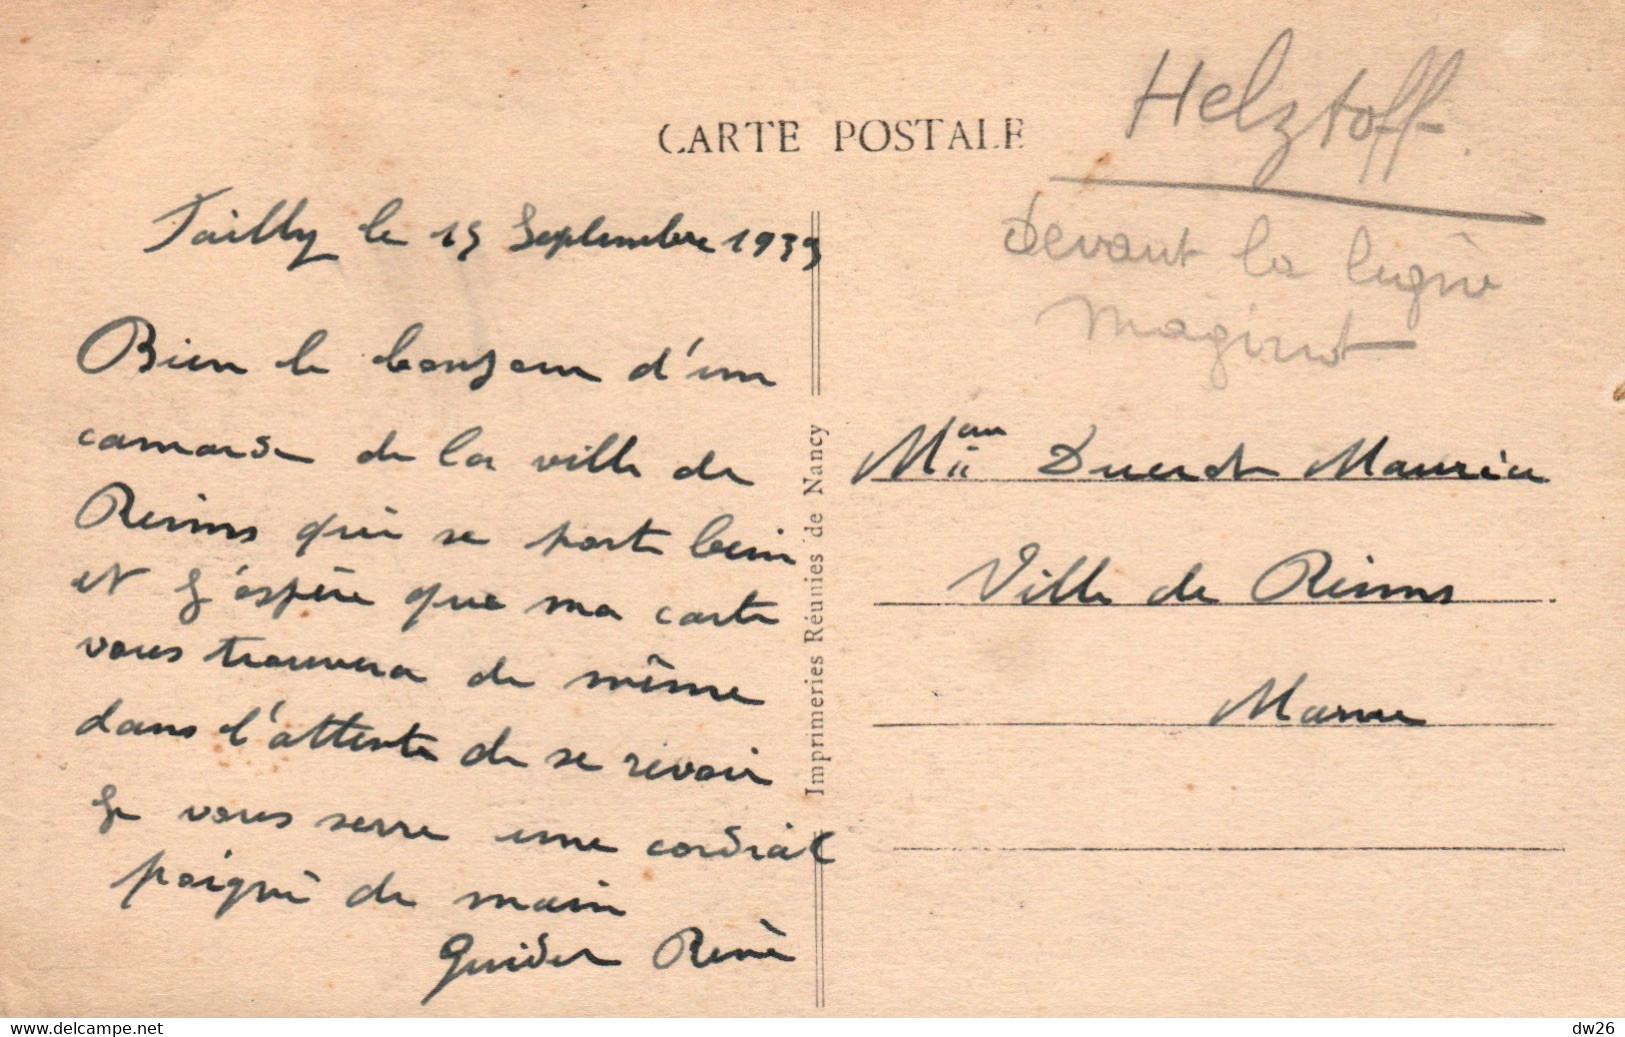 CARTE POSTALE
Helztoff
devant la ligne
Maginot
Jailly le 15 Septembre 1939
Bien le bonjour d'un
camarade de la ville de
Reims qui se porte bien
et j'espère que ma carte
vous trouvera de même
dans l'attente de se revoir
Je vous serre une cordial
poigné de main
Guider René
Imprimeries Réunies de Nancy
Maurice
Ville de Reims
Marne
www.delcampe.net
dw26